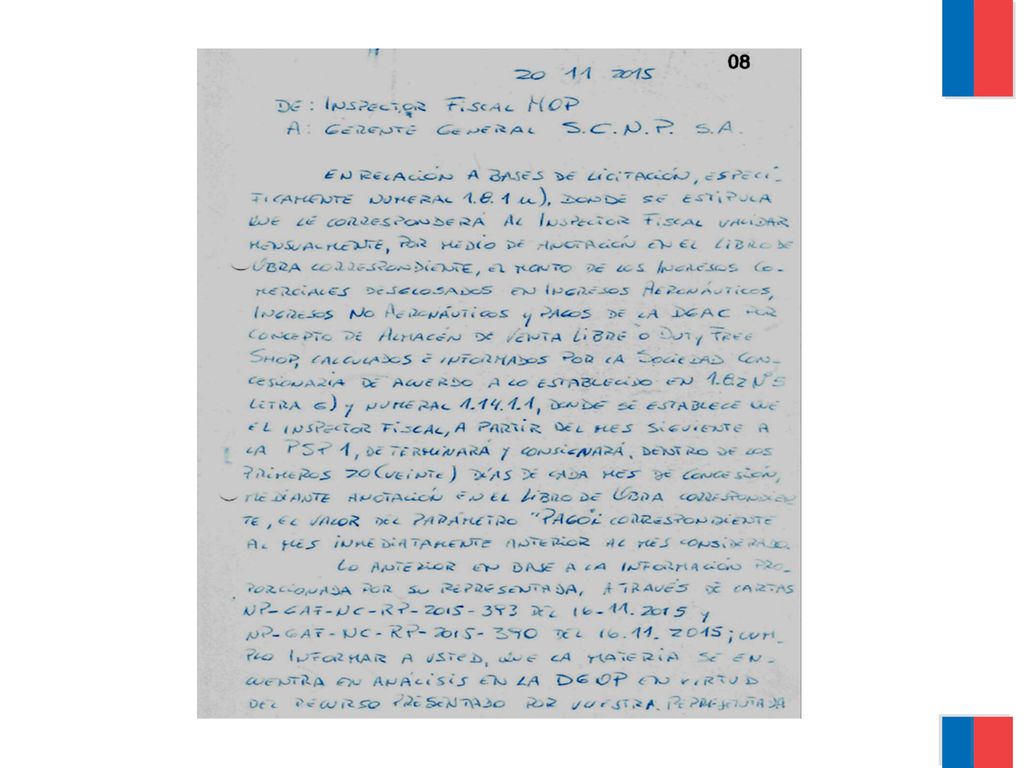 08
20 11 2015
DE: INSPECTOR FISCAL MOP
A: GERENTE GENERAL S.C.N.P. S.A.
EN RELACIÓN A BASES DE LICITACIÓN, ESPECÍ-
FICAMENTE NUMERAL 1.8.1 u), DONDE SE ESTIPULA
QUE LE CORRESPONDERÁ AL INSPECTOR FISCAL VALIDAR
MENSUALMENTE, POR MEDIO DE ANOTACIÓN EN EL LIBRO DE
OBRA CORRESPONDIENTE, EL MONTO DE LOS INGRESOS CO-
MERCIALES DESGLOSADOS EN INGRESOS AERONÁUTICOS,
INGRESOS NO AERONÁUTICOS y PAGOS DE LA DGAC POR
CONCEPTO DE ALMACÉN DE VENTA LIBRE O DUTY FREE
SHOP, CALCULADOS E INFORMADOS POR LA SOCIEDAD CON-
CESIONARIA DE ACUERDO A LO ESTABLECIDO EN 1.8.2 Nº5
LETRA G) y NUMERAL 1.14.1.1, DONDE SE ESTABLECE QUE
EL INSPECTOR FISCAL, A PARTIR DEL MES SIGUIENTE A
LA PSP 1, DETERMINARÁ Y CONSIGNARÁ, DENTRO DE LOS
PRIMEROS 20 (VEINTE) DÍAS DE CADA MES DE CONCESIÓN,
MEDIANTE ANOTACIÓN EN EL LIBRO DE OBRA CORRESPONDIEN
TE, EL VALOR DEL PARÁMETRO "PAGO", CORRESPONDIENTE
AL MES INMEDIATAMENTE ANTERIOR AL MES CONSIDERADO.
LO ANTERIOR EN BASE A LA INFORMACIÓN PRO-
PORCIONADA POR SU REPRESENTADA, A TRAVÉS DE CARTAS
NP-GAF-NC-RP-2015-393 DEL 16-11.2015 y
NP-GAF-NC-RP-2015-390 DEL 16.11.2015; CUM-
PLO INFORMAR A USTED, QUE LA MATERIA SE EN-
CUENTRA EN ANÁLISIS EN LA DGOP EN VIRTUD
DEL RECURSO PRESENTADO POR VUESTRA REPRESENTADA